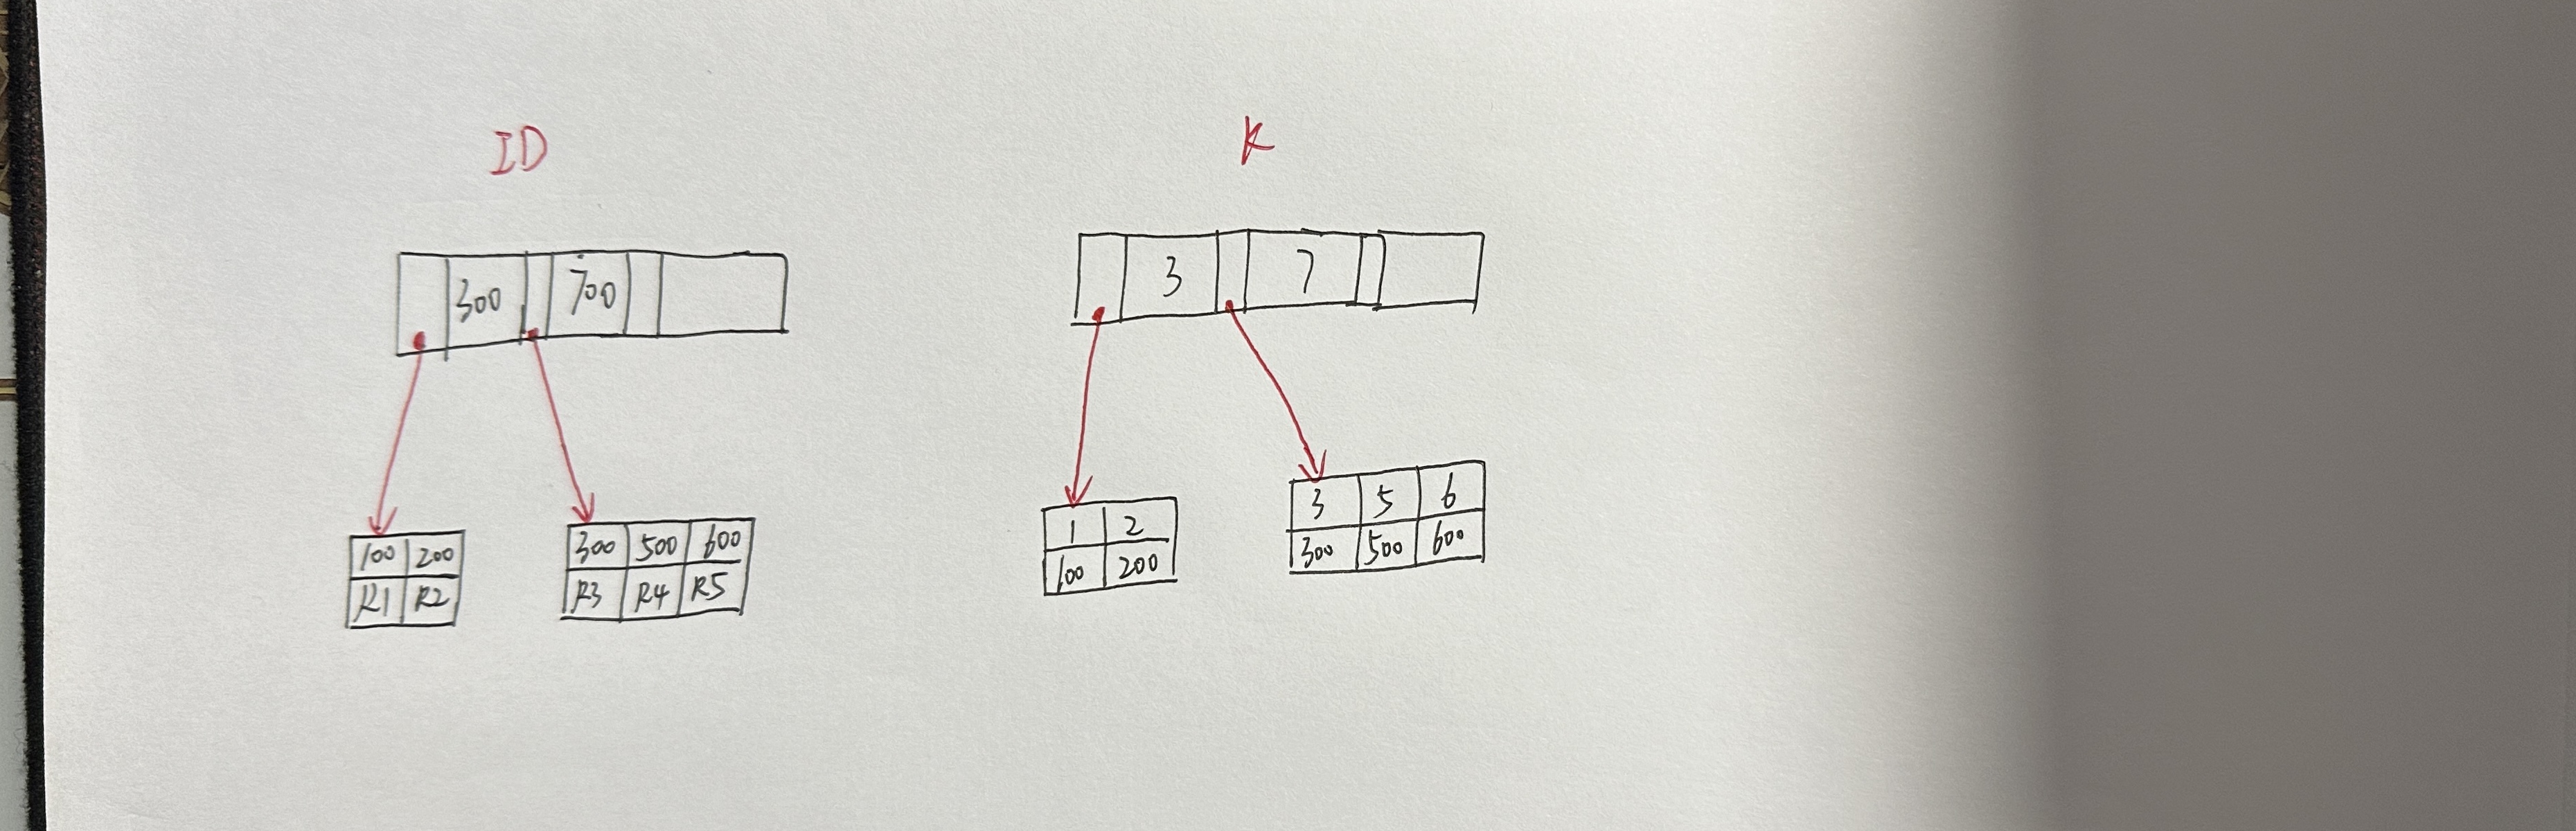 ID
300 700
100 200
R1 R2
300 500 600
R3 R4 R5
K
3 7
1 2
100 200
3 5 6
300 500 600